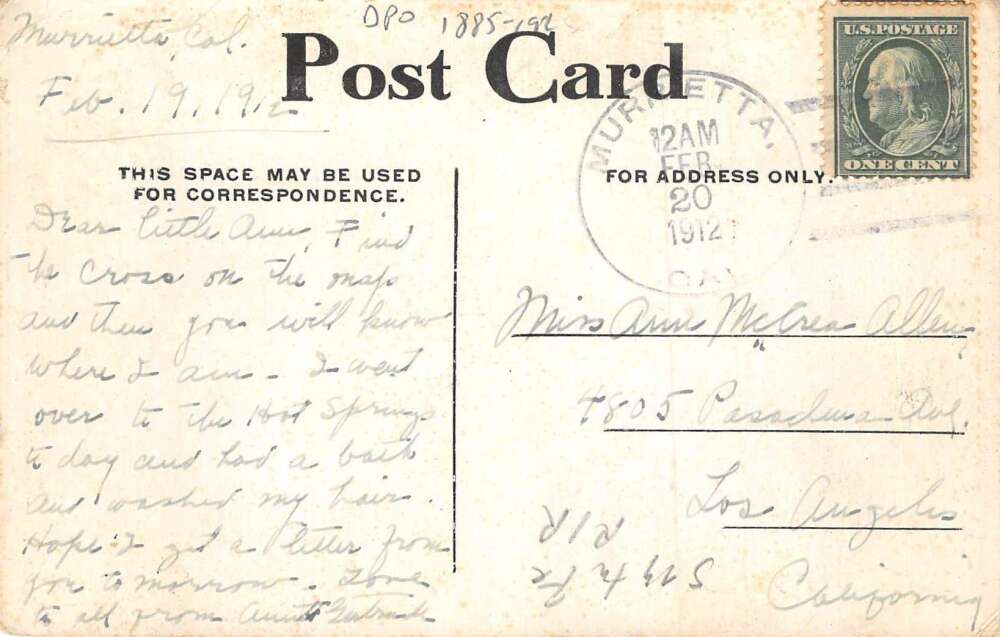 DPO 1885-192
Murrietta, Cal.
Feb. 19, 1912
Post Card
U.S. POSTAGE
ONE CENT
MURRIETTA,
12AM
FEB
20
1912
CAL
THIS SPACE MAY BE USED
FOR CORRESPONDENCE.
FOR ADDRESS ONLY.
Dear little Ann, Find
the cross on the map
and then you will know
where I am - I went
over to the Hot Springs
to day and had a bath
and washed my hair.
Hope I get a letter from
you to morrow - Love
to all from Aunt Gertrude
Miss Ann McCrea Allen,
4805 Pasadena Ave.
Los Angeles
California